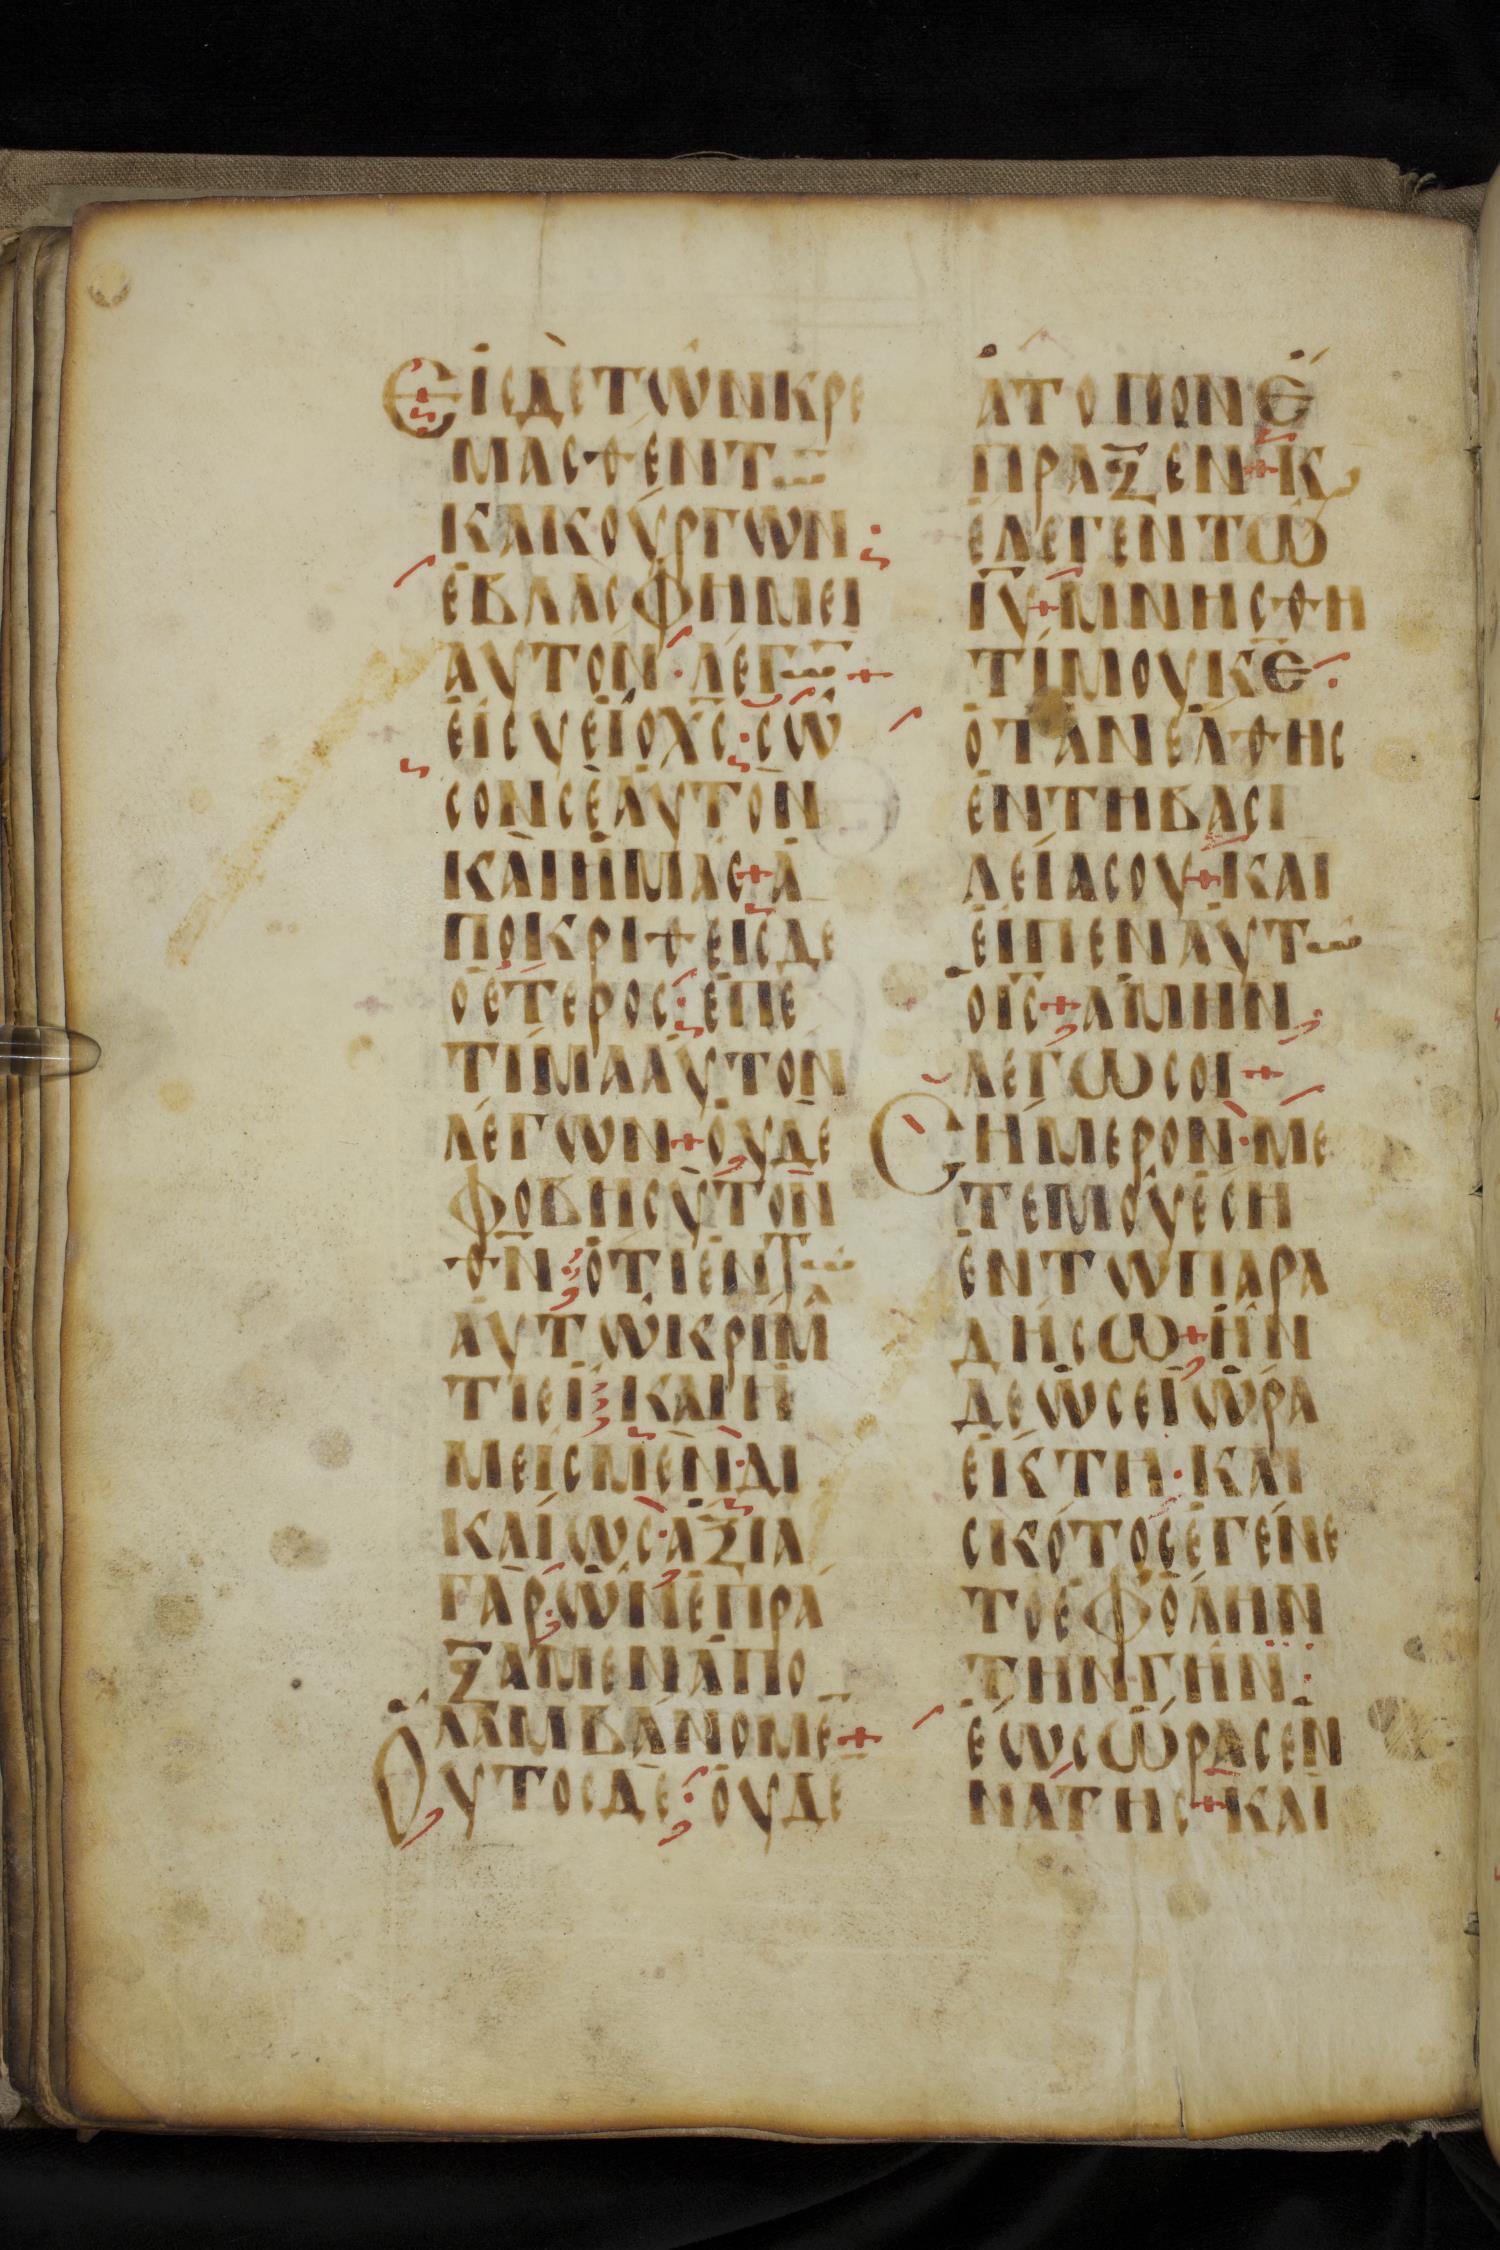 ΕΙϹΔΕΤΩΝΚΡΕ
ΜΑϹΘΕΝΤΩ̅
ΚΑΚΟΥΡΓΩΝ
ΕΒΛΑϹΦΗΜΕΙ
ΑΥΤΟΝ·ΛΕΓΩ̅+
ΕΙϹΥΕΙΟΧ̅Ϲ̅·ϹΩ
ϹΟΝϹΕΑΥΤΟΝ
ΚΑΙΗΜΑϹ+Α
ΠΟΚΡΙΘΕΙϹΔΕ
ΟΕΤΕΡΟϹ:ΕΠΕ
ΤΙΜΑΑΥΤΟΝ
ΛΕΓΩΝ+ΟΥΔΕ
ΦΟΒΗϹΥΤΟΝ
Θ̅Ν̅:ΟΤΙΕΝΤΩ
ΑΥΤΩΚΡΙΜΑ
ΤΙΕΙ:ΚΑΙΗ
ΜΕΙϹΜΕΝ·ΔΙ
ΚΑΙΩϹ·ΑΞΙΑ
ΓΑΡ:ΩΝΕΠΡΑ
ΞΑΜΕΝΑΠΟ
ΛΑΜΒΑΝΟΜΕ̅+
ΟΥΤΟϹΔΕ:ΟΥΔΕ
ΑΤΟΠΟΝΕ
ΠΡΑΞΕΝ+Κ
ΕΛΕΓΕΝΤΩ
Ι̅Υ̅+ΜΝΗϹΘΗ
ΤΙΜΟΥΚ̅Ε̅·
ΟΤΑΝΕΛΘΗϹ
ΕΝΤΗΒΑϹΙ
ΛΕΙΑϹΟΥ+ΚΑΙ
ΕΙΠΕΝΑΥΤΩ
ΟΙ̅Ϲ̅+ΑΜΗΝ
ΛΕΓΩϹΟΙ+
ϹΗΜΕΡΟΝ·ΜΕ
ΤΕΜΟΥΕϹΗ
ΕΝΤΩΠΑΡΑ
ΔΗϹΩ+ΗΝ
ΔΕΩϹΕΙΩΡΑ
ΕΙΚΤΗ·ΚΑΙ
ϹΚΟΤΟϹΕΓΕΝΕ
ΤΟΕΦΟΛΗΝ
ΤΗΝΓΗΝ:
ΕΩϹΩΡΑϹΕΝ
ΝΑΤΗϹ+ΚΑΙ